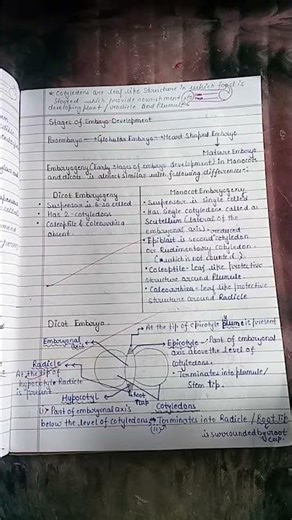 * Cotyledons are leaf like structure in which food is
stored which provide nourishment to
developing plant / radicle and Plumule
Stages of Embryo Development
Proembryo → Globular Embryo → Heart Shaped Embryo
↓
Mature Embryo
Embryogeny (early stages of embryo development) in Monocots
and dicots is almost similar with following differences:-
Dicot Embryogeny
• Suspensor is 6-10 celled
• Has 2-cotyledons
• Coleoptile & coleorrhiza
absent.
Monocot Embryogeny
• Suspensor is single celled
• Has single cotyledon called as
Scutellum (lateral of the
embryonal axis).
• Epiblast is second reduced cotyledon
or Rudimentary cotyledon.
(but it is not counted)
• Coleoptile - leaf like protective
structure around Plumule
• Coleorrhiza - leaf like protective
structure around Radicle
Dicot Embryo
→ At the tip of epicotyle plume is present
Embryonal
axis
Epicotyle - Part of embryonal
axis above the level of
cotyledons.
• Terminates into plumule /
Stem tip.
Radicle
At the tip of
hypocotyle Radicle
is present
Hypocotyl
Root
cap
Cotyledons
(i) Part of embryonal axis
below the level of cotyledons
(ii) Terminates into Radicle / Root tip
is surrounded by root
cap.